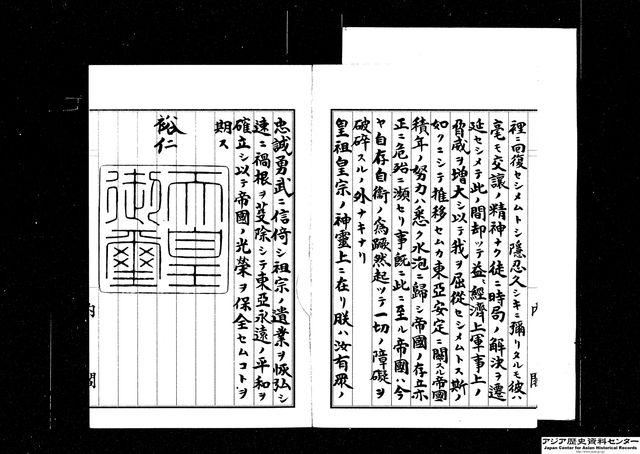 裡ニ囘復セシメムトシ隱忍久シキニ彌リタルモ彼ハ
毫モ交讓ノ精神ナク徒ニ時局ノ解決ヲ遷
延セシメテ此ノ間却ツテ益〻經濟上軍事上ノ
脅威ヲ增大シ以テ我ヲ屈從セシメムトス斯ノ
如クニシテ推移セムカ東亞安定ニ關スル帝國
積年ノ努力ハ悉ク水泡ニ歸シ帝國ノ存立亦
正ニ危殆ニ瀕セリ事旣ニ此ニ至ル帝國ハ今
ヤ自存自衞ノ爲蹶然起ツテ一切ノ障礙ヲ
破碎スルノ外ナキナリ
皇祖皇宗ノ神靈上ニ在リ朕ハ汝有衆ノ
忠誠勇武ニ信倚シ祖宗ノ遺業ヲ恢弘シ
速ニ禍根ヲ芟除シテ東亞永遠ノ平和ヲ
確立シ以テ帝國ノ光榮ヲ保全セムコトヲ
期ス
裕仁
天皇
御璽
内閣
内閣
アジア歴史資料センター
Japan Center for Asian Historical Records